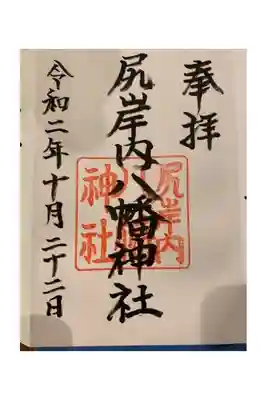 奉拝
尻岸内八幡神社
尻岸内
神社
令和二年十月二十二日